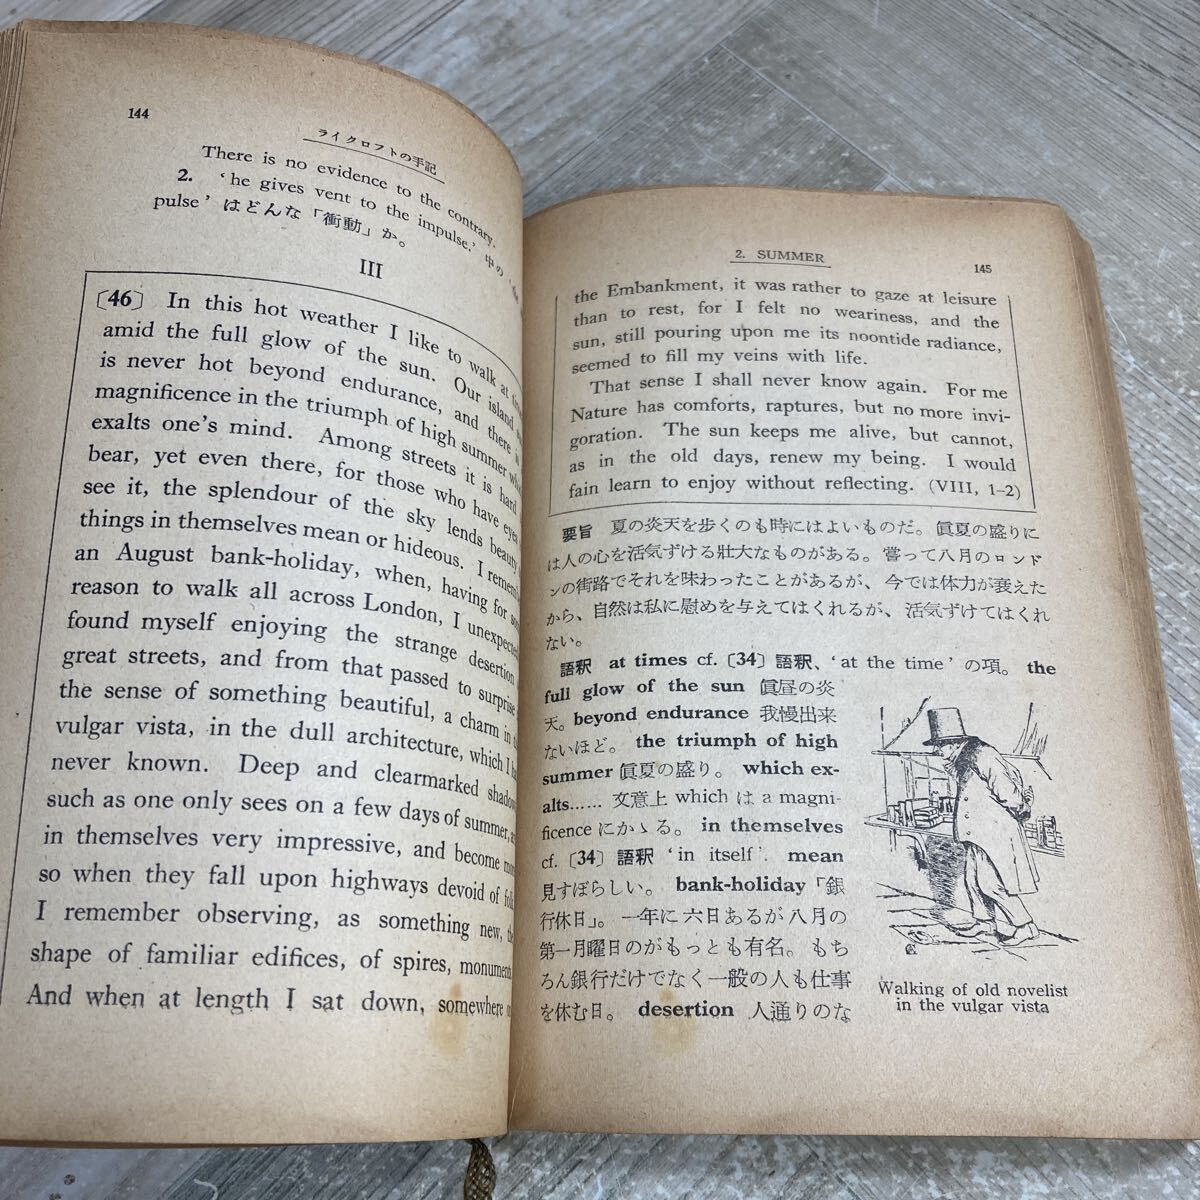 144
ライクロフトの手記
There is no evidence to the contrary.
2. ‘he gives vent to the impulse.’ 中の ‘the
pulse’ はどんな「衝動」か。
III
〔46〕 In this hot weather I like to walk at
amid the full glow of the sun. Our island
is never hot beyond endurance, and there is
magnificence in the triumph of high summer
exalts one's mind. Among streets it is hard
bear, yet even there, for those who have eyes
see it, the splendour of the sky lends beauty
things in themselves mean or hideous. I
an August bank-holiday, when, having for
reason to walk all across London, I
found myself enjoying the strange desertion
great streets, and from that passed to surprise
the sense of something beautiful, a charm in
vulgar vista, in the dull architecture, which I
never known. Deep and clearmarked
such as one only sees on a few days of summer,
in themselves very impressive, and become
so when they fall upon highways devoid of
I remember observing, as something new,
shape of familiar edifices, of spires,
And when at length I sat down, somewhere
2. SUMMER
145
the Embankment, it was rather to gaze at leisure
than to rest, for I felt no weariness, and the
sun, still pouring upon me its noontide radiance,
seemed to fill my veins with life.
That sense I shall never know again. For me
Nature has comforts, raptures, but no more invi-
goration. The sun keeps me alive, but cannot,
as in the old days, renew my being. I would
fain learn to enjoy without reflecting. (VIII, 1–2)
要旨 夏の炎天を歩くのも時にはよいものだ。眞夏の盛りに
は人の心を活気ずける壯大なものがある。嘗って八月のロンド
ンの街路でそれを味わったことがあるが、今では体力が衰えた
から、自然は私に慰めを与えてはくれるが、活気ずけてはくれ
ない。
語釈 at times cf.〔34〕語釈、‘at the time’ の項。 the
full glow of the sun 眞昼の炎
天。beyond endurance 我慢出来
ないほど。 the triumph of high
summer 眞夏の盛り。 which ex-
alts...... 文意上 which は a magni-
ficence にかゝる。 in themselves
cf.〔34〕語釈 ‘in itself’. mean
見すぼらしい。 bank-holiday「銀
行休日」。一年に六日あるが八月の
第一月曜日のがもっとも有名。もち
ろん銀行だけでなく一般の人も仕事
を休む日。 desertion 人通りのな
Walking of old novelist
in the vulgar vista